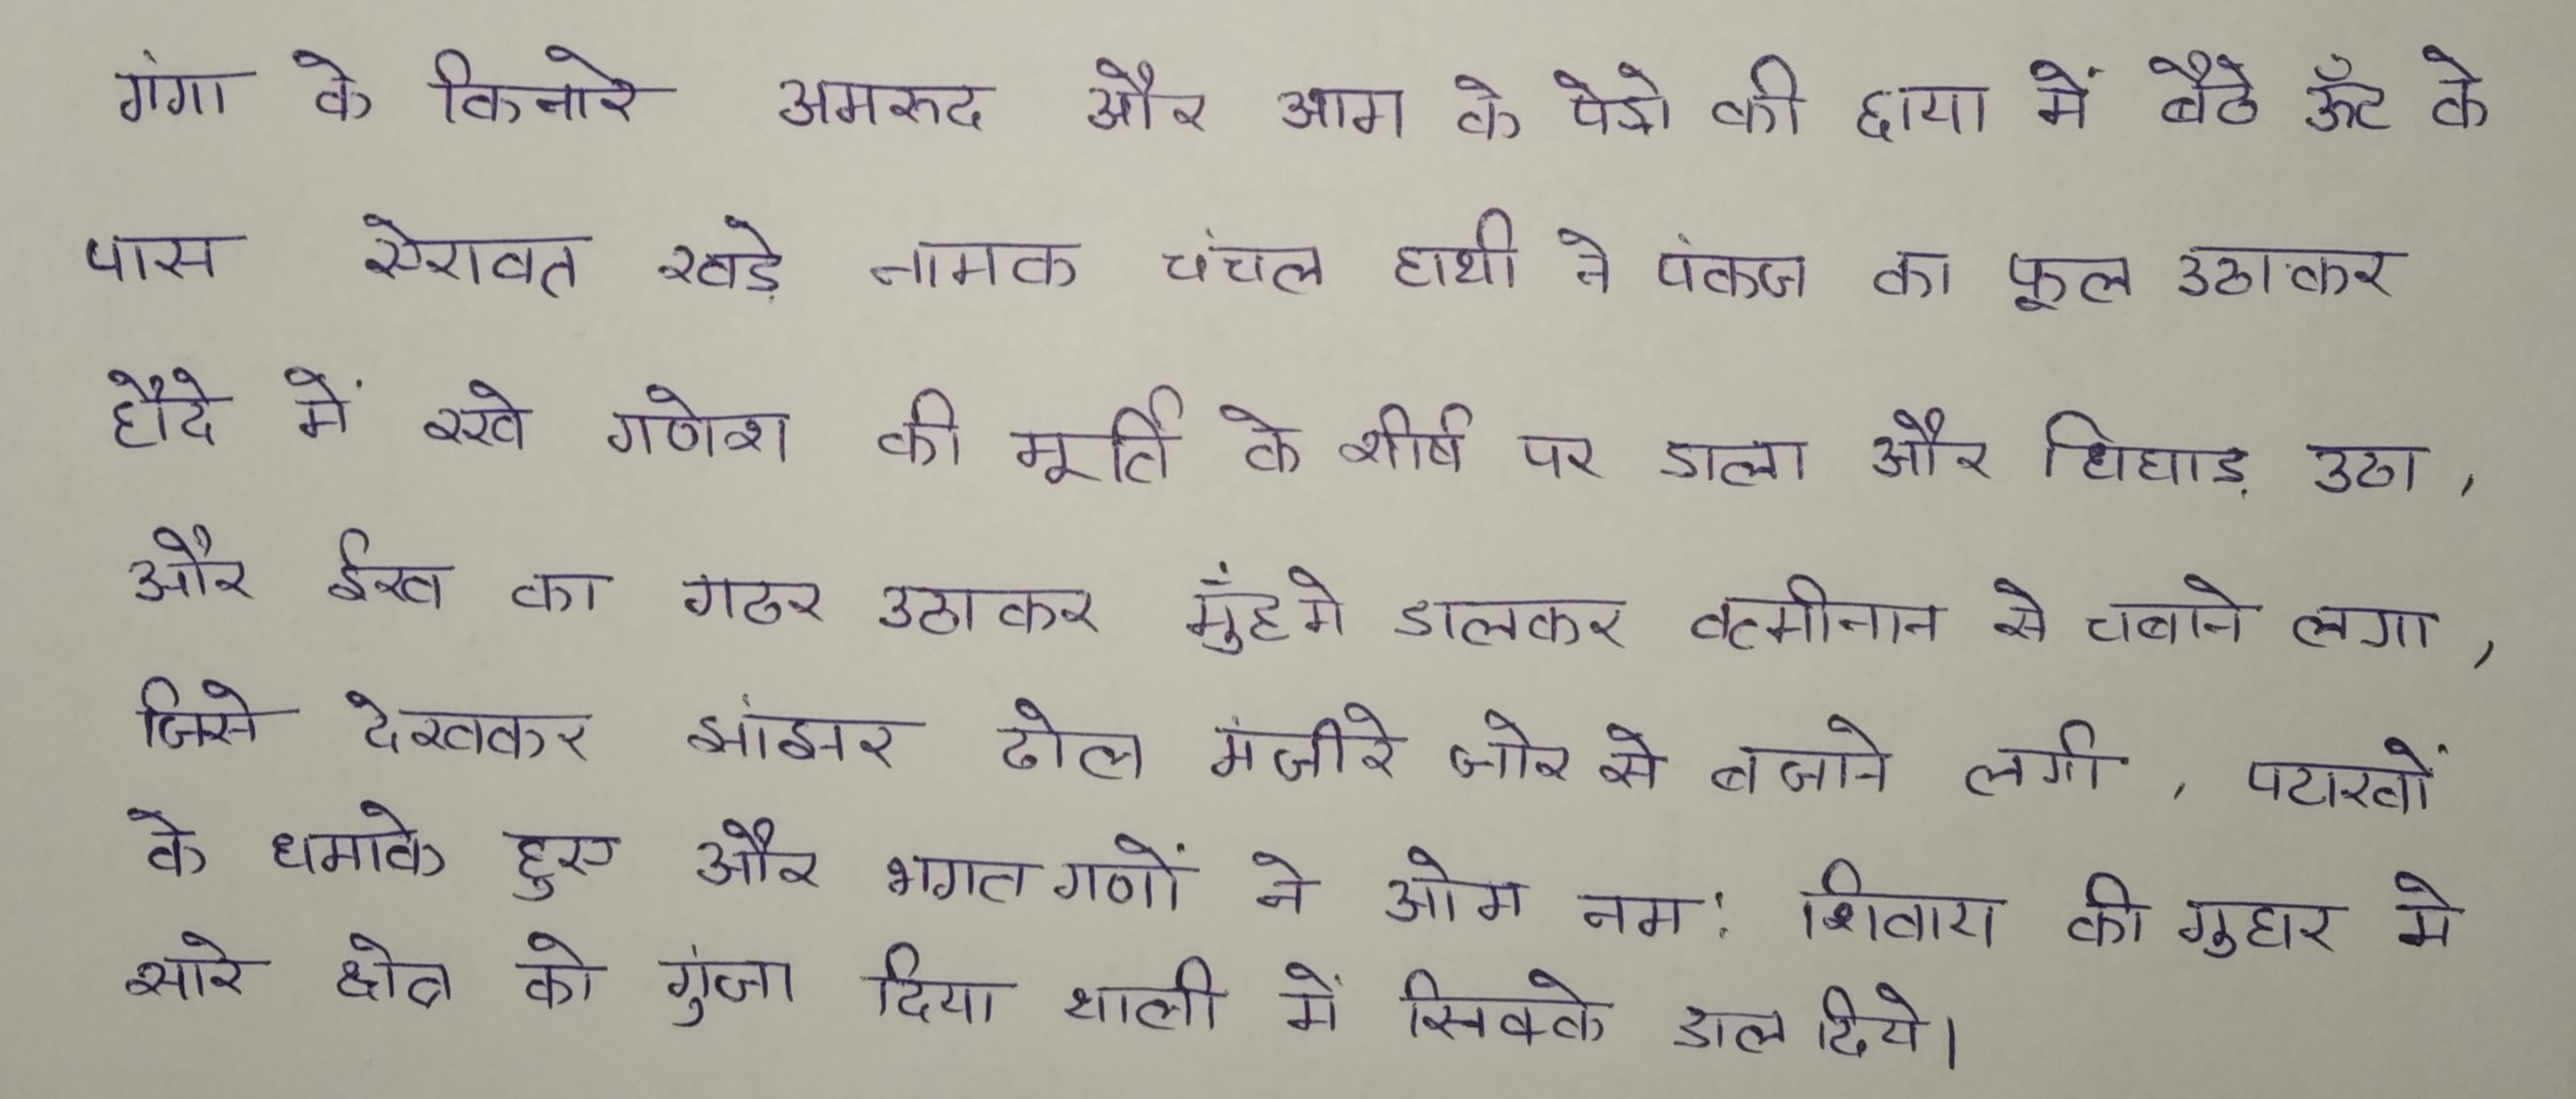 गंगा के किनारे अमरुद और आम के पेड़ो की छाया में बैठे ऊँट के
पास ऐरावत खड़े नामक चंचल हाथी ने पंकज का फूल उठाकर
हौदे में रखे गणेश की मूर्ति के शीर्ष पर डाला और घिघाड़ उठा,
और ईख का गठर उठाकर मुँह मे डालकर से चबाने लगा,
जिसे देखकर झांझर ढोल मंजीरे जोर से बजाने लगी, पटाखों
के धमाके हुए और भगत गणों ने ओम नम: शिवाय की गुहार मे
सारे क्षेत्र को गुंजा दिया थाली में सिक्के डाल दिये।